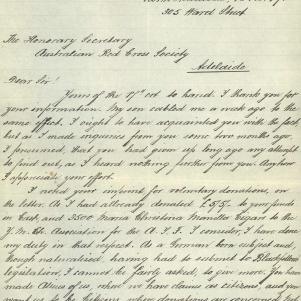 305 Ward Street
The Honorary Secretary
Australian Red Cross Society
Adelaide
Dear Sir!
Yours of the 17 Oct to hand. I thank you for
your information. My son cabled me a week ago to the
same effect. I ought to have acquainted you with the fact,
but as I made enquiries from you some two months ago,
I presumed, that you had given up long ago any attempt
to find out, as I heard nothing further from you. Anyhow
I appreciate your effort.
I noted your imprint for voluntary donations, on
the letter. As I had already donated £5/5/- to your funds
in Cash, and 2500 Maria Christina Manilla Cigars to the
Y.M.C. Association for the A.I.F. I consider, I have done
my duty in that respect. As a German born subject and,
though naturalized, having had to submit to
legislation, I cannot be fairly asked, to give more. You have
made Aliens of us, when we have claims as citizens and you
want us to be citizens when donations are concerned